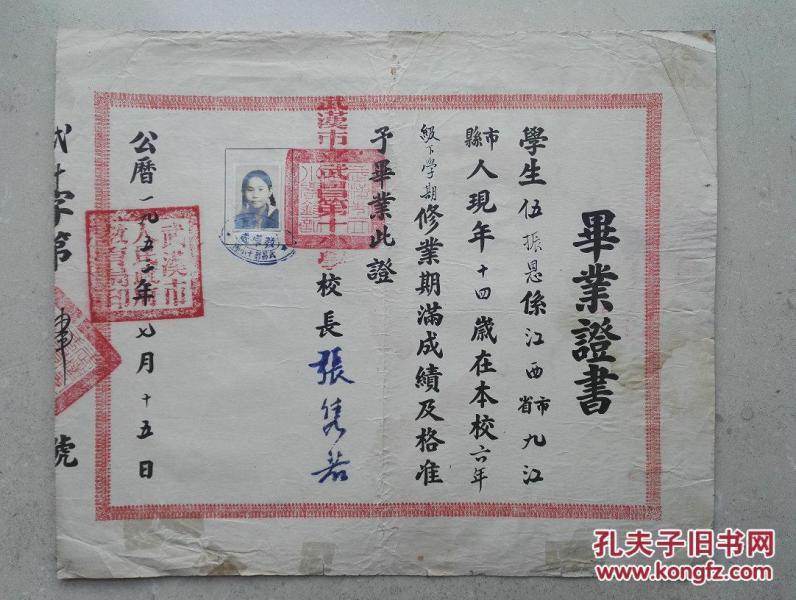 畢業證書
學生伍振恩係江西省市九江
縣市人現年十四歲在本校六年
級下學期修業期滿成績及格准
予畢業此證
武漢市武昌第十小學校長張雋若
公曆一九五 年七月十五日
武漢市人民政府教育局印
字第 號
孔夫子旧书网
www.kongfz.com